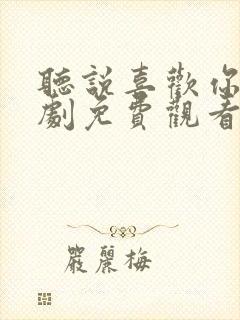 聽說喜歡你
劇免費觀看
嚴麗梅